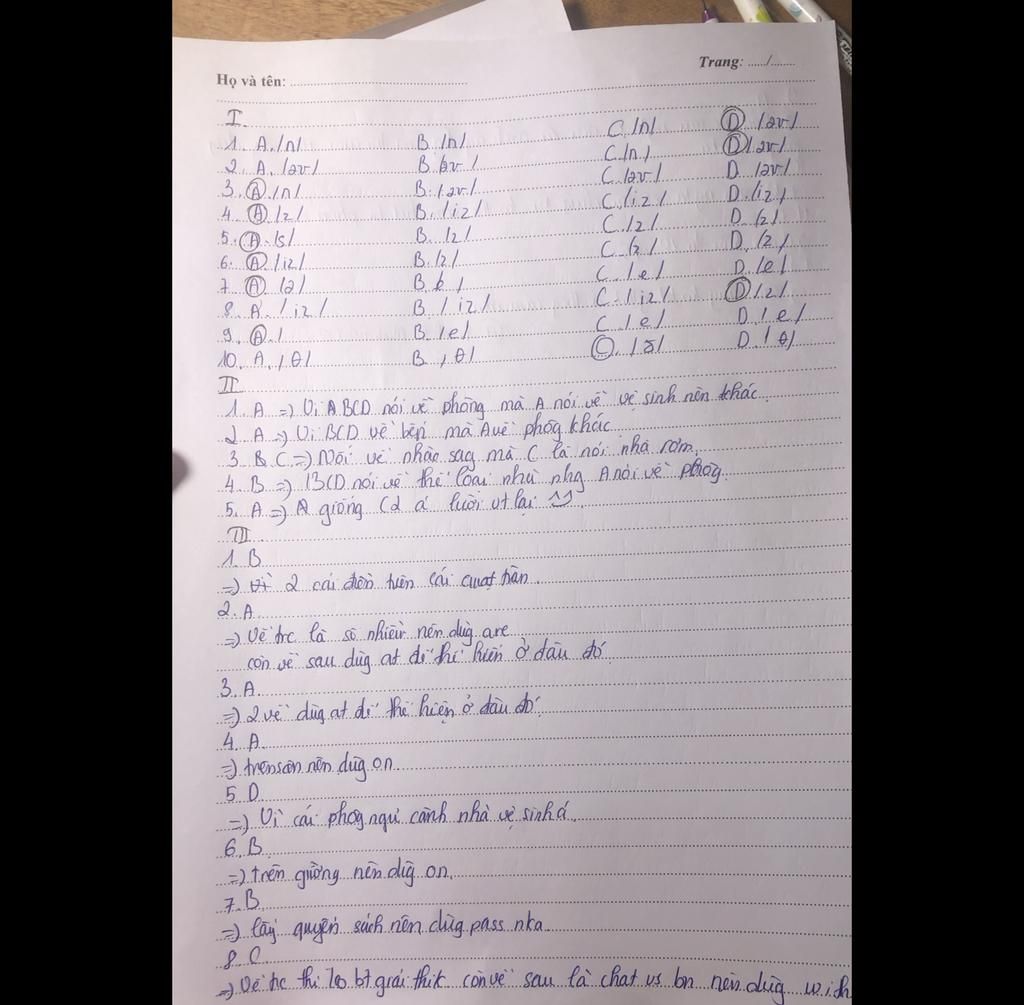 Trang: ...../.......
Họ và tên: ..............................
I.
1. A. /n/ B /n/ C /n/ D /əʊ/
2. A. /əʊ/ B /əʊ/ C /n/ D /əʊ/
3. A /n/ B. /əʊ/ C /əʊ/ D /əʊ/
4. A /z/ B. /iz/ C /iz/ D. /iz/
5. A. /s/ B. /z/ C /z/ D. /z/
6. A /iz/ B. /z/ C /z/ D. /z/
7. A /ə/ B C /e/ D. /e/
8. A. /iz/ B /iz/ C /iz/ D /z/
9. A. / B. /e/ C /e/ D. /e/
10. A. /θ/ B /θ/ C. /ð/ D. /θ/
II
1. A => Vì BCD nói về phòng mà A nói về vệ sinh nên khác
2. A => Vì BCD về bếp mà A về phòg khác
3. C => Nói về mà C là nói nhà rơm
4. B => BCD nói về thể loại nhà nhg A nói về phòg
5. A => A giống C2 á lười vt lại ^^
III
1. B
=> vì 2 cái đèn trên cái quạt trần
2. A
=> Vế trc là số nhiều nên dùg are
còn vế sau dùg at để thể hiện ở đâu đó
3. A
=> 2 vế dùg at để thể hiện ở đâu đó
4. A
=> trên sàn nên dùg on
5 D
=> Vì cái phòg ngủ cạnh nhà vệ sinh á
6. B
=> trên giường nên dùg on
7. B
=> lấy quyển sách nên dùg pass nka
8. C
=> Vế trc thì ko bt giải thik còn vế sau là chat vs bn nên dùg with